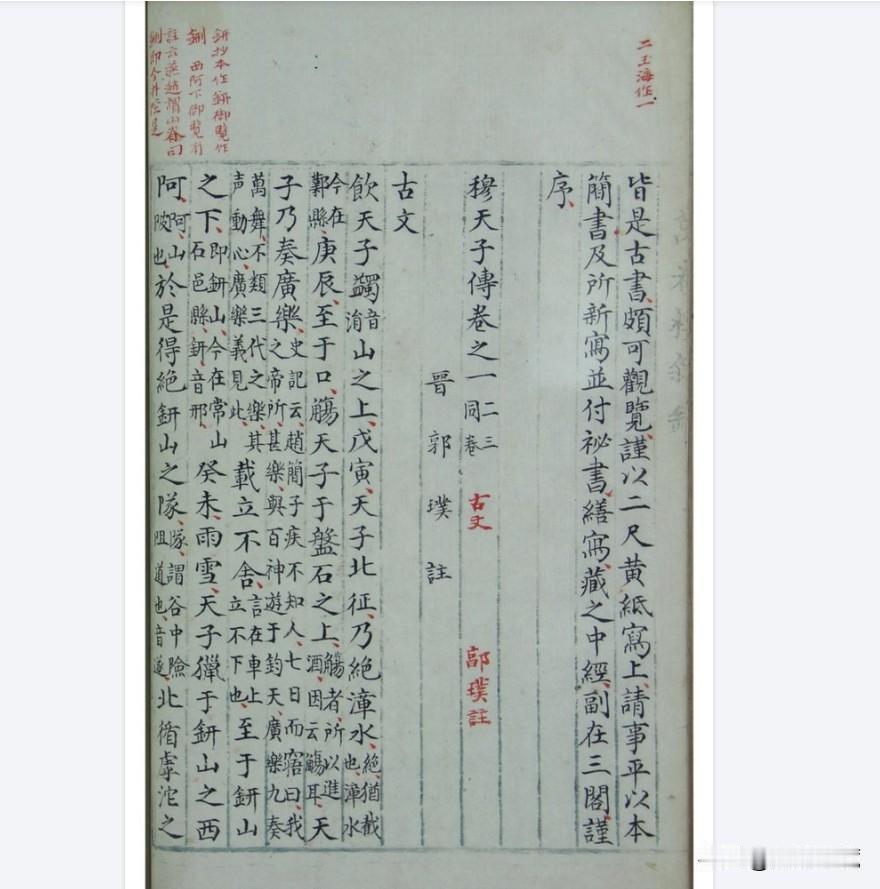 二玉海作一
皆是古書頗可觀覽謹以二尺黃紙寫上請事平以本
簡書及所新寫並付祕書繕寫藏之中經副在三閣謹
序
穆天子傳卷之一 二三同卷 古文 郭璞註
晉 郭 璞 註
古文
飲天子蠲音涓山之上戊寅天子北征乃絕漳水絕猶截也漳水
今在鄴縣庚辰至于口觴天子于盤石之上觴者所以進酒因云觴耳天
子乃奏廣樂史記云趙簡子疾不知人七日而寤曰我之帝所甚樂與百神遊于鈞天廣樂九奏
萬舞不類三代之樂其声動心廣樂義見此載立不舍言在車上立不下也至于鈃山
之下即鈃山今在常山石邑縣鈃音邢癸未雨雪天子獵于鈃山之西
阿阿山陂也於是得絕鈃山之隊隊謂谷中險阻道也音遂北循虖沱之
鈃抄本作鈃御覽作
鉶 西阿下御覽有
註云燕趙謂山脊曰
鉶即今井陘是